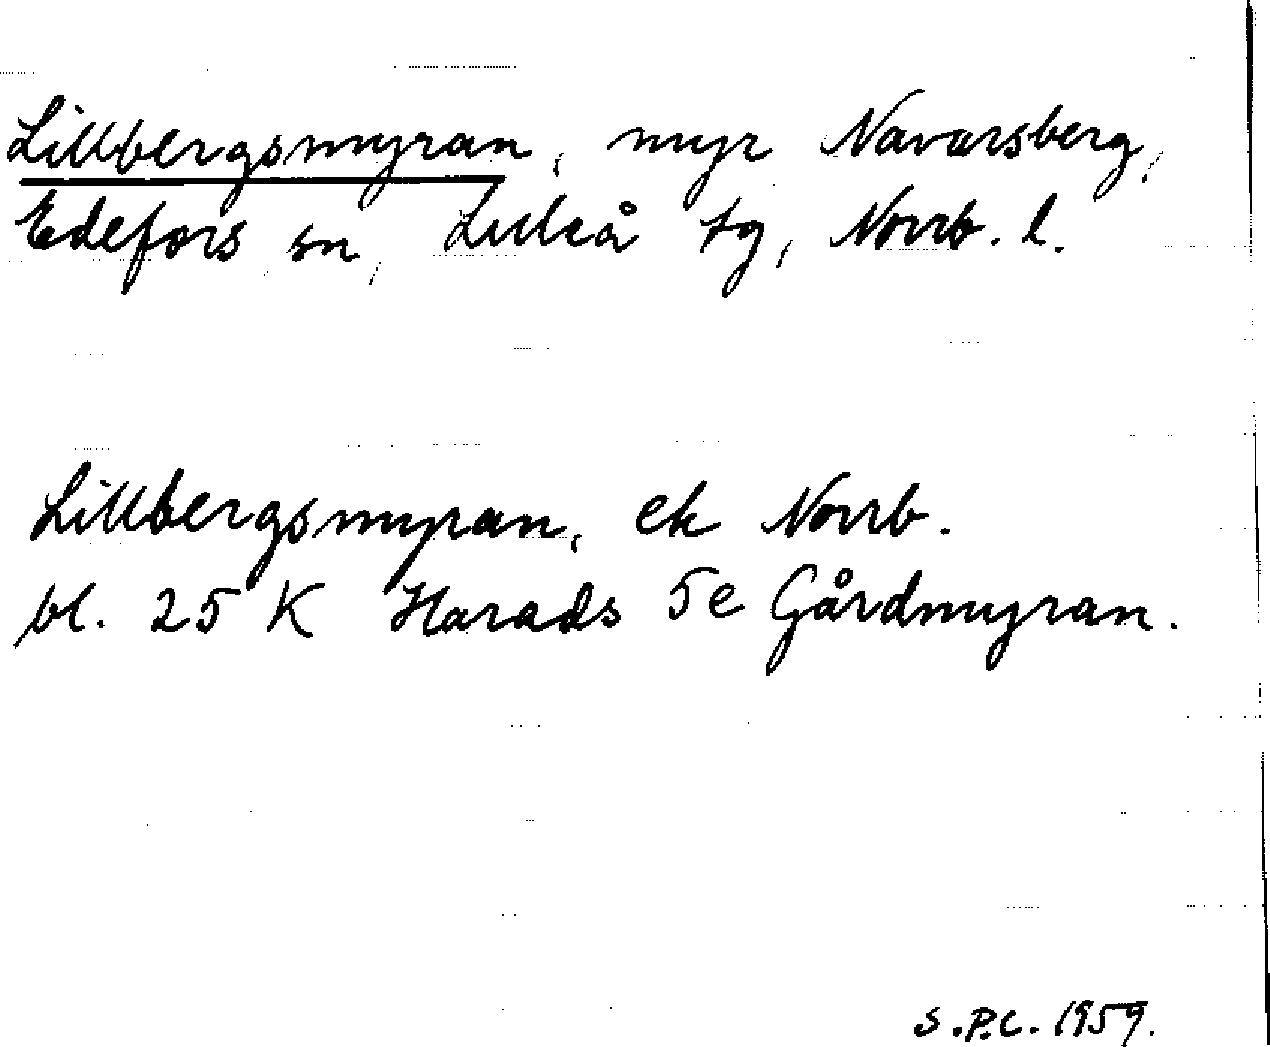 Lillbergsmyran, myr Navarsberg,
Edefors sn, Luleå tg, Norrb. l.
Lillbergsmyran, ek Norrb.
bl. 25 K Harads 5e Gårdmyran.
S.P.C. 1959.